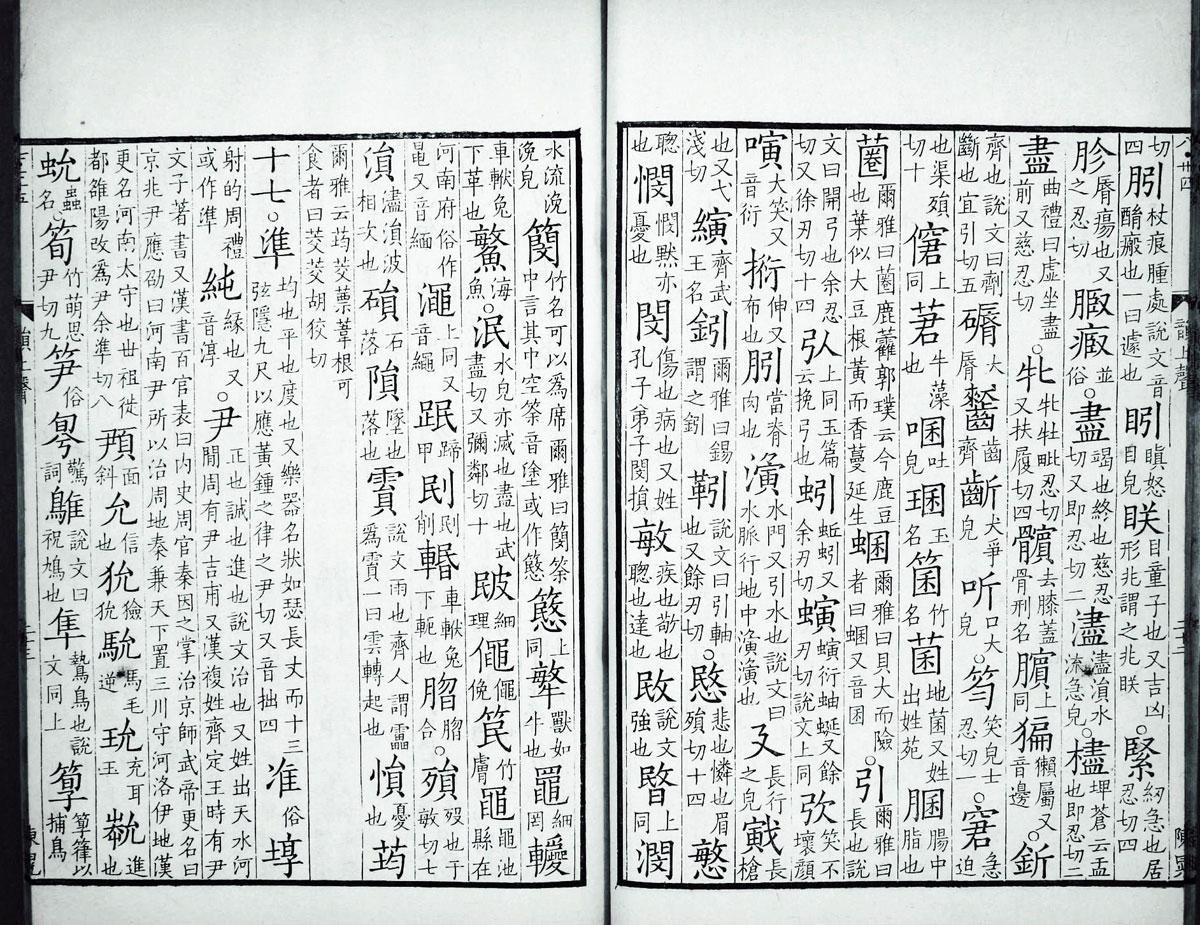 切四䏖杖痕腫處說文音酳瘢也一曰遽也瞋怒目皃眹目童子也又吉凶形兆謂之兆眹○緊紉急也居忍切四
胗脣瘍也又之忍切並俗○盡竭也終也慈忍切又即忍切二濜濜溳水流急皃○㯸埤蒼云盂也即忍切二
盡曲禮曰虛坐盡前又慈忍切○牝牝牡毗忍切又扶履切四髕去膝蓋骨刑名臏上同猵獺屬又音邊○釿
齊也說文曰劑斷也宜引切五大脣齒齊齗犬爭皃听口大皃○笉笑皃士忍切一○窘急迫
也渠殞切十僒上同莙牛藻啯吐皃珚玉名箘竹名菌地菌又姓出姓苑䐃腸中脂也
蔨爾雅曰蔨鹿藿郭璞云今鹿豆也葉似大豆根黃而香蔓延生蜠爾雅曰貝大而險者曰蜠又音囷○引爾雅曰長也說
文曰開弓也余忍切又徐刃切十四上同玉篇云挽弓也蚓蚯蚓又余刃切螾螾衍蚰蜒又餘刃切說文上同弞笑不壞顏
大笑又音衍伸又布也當脊肉也濥水門又引水也說文曰水脈行地中濥濥也廴長行之皃戭長槍
也又弋淺切縯齊武王名鈏爾雅曰錫謂之鈏靷說文曰引軸也又餘刃切○愍悲也憐也眉殞切十四憗
聰也憫憫默亦憂也閔傷也病也又姓孔子弟子閔損敏疾也敬也聰也達也敃說文強也暋上同潣
水流浼浼皃簢竹名可以爲席爾雅曰簢筡中言其中空筡音塗或作慜慜上同獸如牛也鼆細罔轗
車軾兔下革也䲄海魚○泯水皃亦滅也盡也武盡切又彌鄰切十細理僶僶俛笢竹膚黽黽池縣在
河南府俗作黾又音緬澠上同又音繩蹄甲刡刡削輴車軾兔下軛也脗脗合○殞歿也于敏切七
溳濜溳波相次也磒石落隕墜也落也霣說文雨也齊人謂靁爲霣一曰雲轉起也憤憂也荺
爾雅云荺茭藁葦根可食者曰茭茭胡狡切
十七○準均也平也度也又樂器名狀如瑟長丈而十三弦隱九尺以應黃鍾之律之尹切又音拙四准俗埻
射的周禮或作準純緣也又音淳○尹正也誠也進也說文治也又姓出天水河閒周有尹吉甫又漢複姓齊定王時有尹
文子著書又漢書百官表曰內史周官秦因之掌治京師武帝更名曰京兆尹應劭曰河南尹所以治周地秦兼天下置三川守河洛伊地漢
更名河南太守也世祖從都雒陽改爲尹余準切八面斜允信也狁獫狁馻馬毛逆玧充耳玉進也
蟲名○筍竹萌思尹切九笋俗驚詞鵻說文曰祝鳩也隼鷙鳥也說文同上箰箰簅以捕鳥